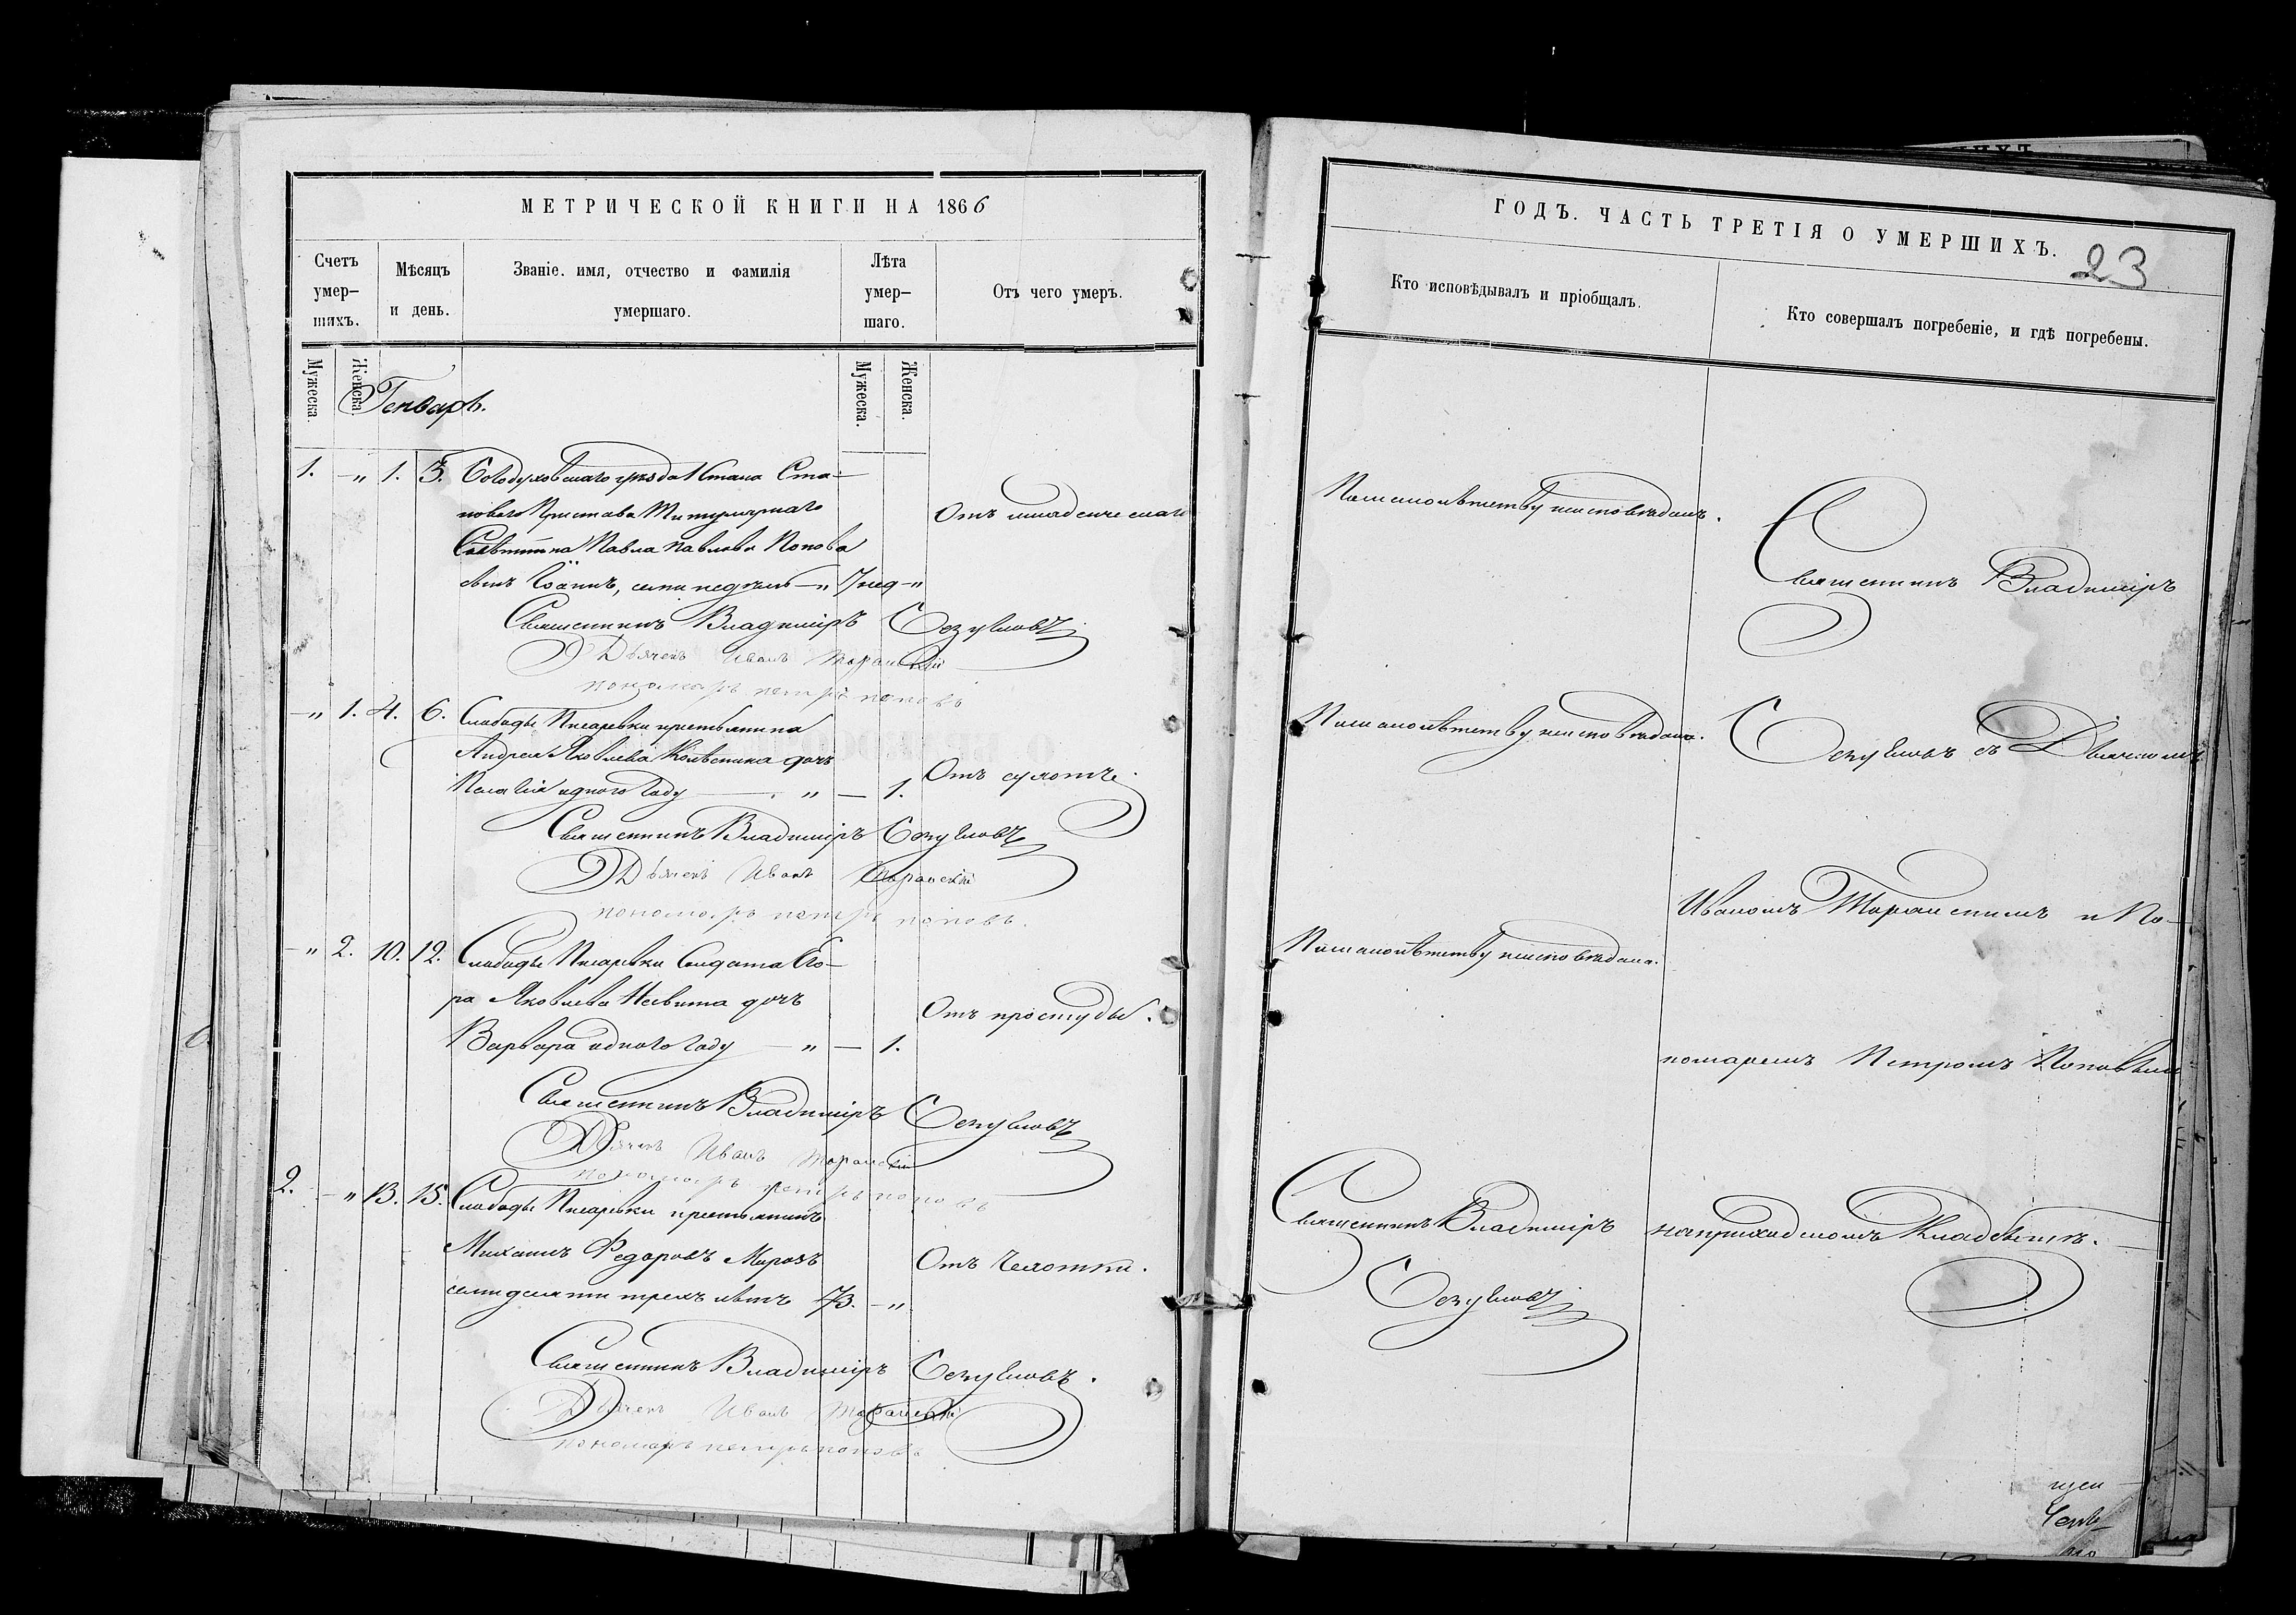 МЕТРИЧЕСКОЙ КНИГИ НА 1866
Счетъ умер-шихъ.
Мѣсяцъ и день.
Званіе. имя, отчество и фамилія умершаго.
Лѣта умер-шаго.
Отъ чего умеръ.
Мужеска.
Женска.
Мужеска.
Женска.
Генварь.
1. —„ 1. 3. Богодуховскаго уѣзда 1 стана Ста-
новаго Пристава Титулярнаго
Совѣтника Павла Павлова Попова
сынъ Іоаннъ, семи недѣль —„ 7 нед —„
Отъ младенческаго
Священникъ Владиміръ
Дьячекъ Иванъ
пономарь петръ поповъ
—„ 1. 4. 6. Слободы Писаревки крестьянина
Андрея Яковлева дочь
Пелагія одного году — „ — 1.
Отъ сухотъ.
Священникъ Владиміръ
Дьячекъ Иванъ
пономарь петръ поповъ.
—„ 2. 10. 12. Слободы Писаревки Солдата Его-
ра Яковлева дочь
Варвара одного году — „ — 1.
Отъ простуды.
Священникъ Владиміръ
Дьячекъ Иванъ
пономарь петръ поповъ
2. —„ 13. 15. Слободы Писаревки крестьянинъ
Михаилъ Федоровъ Морозъ
семидесяти трехъ лѣтъ 73. —„
Отъ Чахотки.
Священникъ Владиміръ
Дьячекъ Иванъ
пономарь петръ поповъ
ГОДЪ. ЧАСТЬ ТРЕТІЯ О УМЕРШИХЪ.
23
Кто исповѣдывалъ и пріобщалъ.
Кто совершалъ погребеніе, и гдѣ погребены.
По малолѣтству неисповѣданъ.
По малолѣтству неисповѣдана.
По малолѣтству неисповѣдана.
Священникъ Владиміръ
Священникъ Владиміръ
съ Дьячкомъ
Иваномъ и По-
номаремъ Петромъ Поповымъ
на приходскомъ Кладбищѣ.